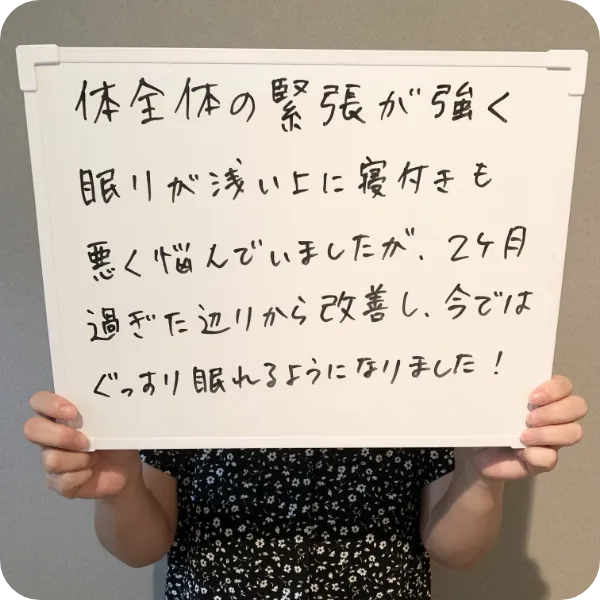 体全体の緊張が強く
眠りが浅い上に寝付きも
悪く悩んでいましたが、2ヶ月
過ぎた辺りから改善し、今では
ぐっすり眠れるようになりました！